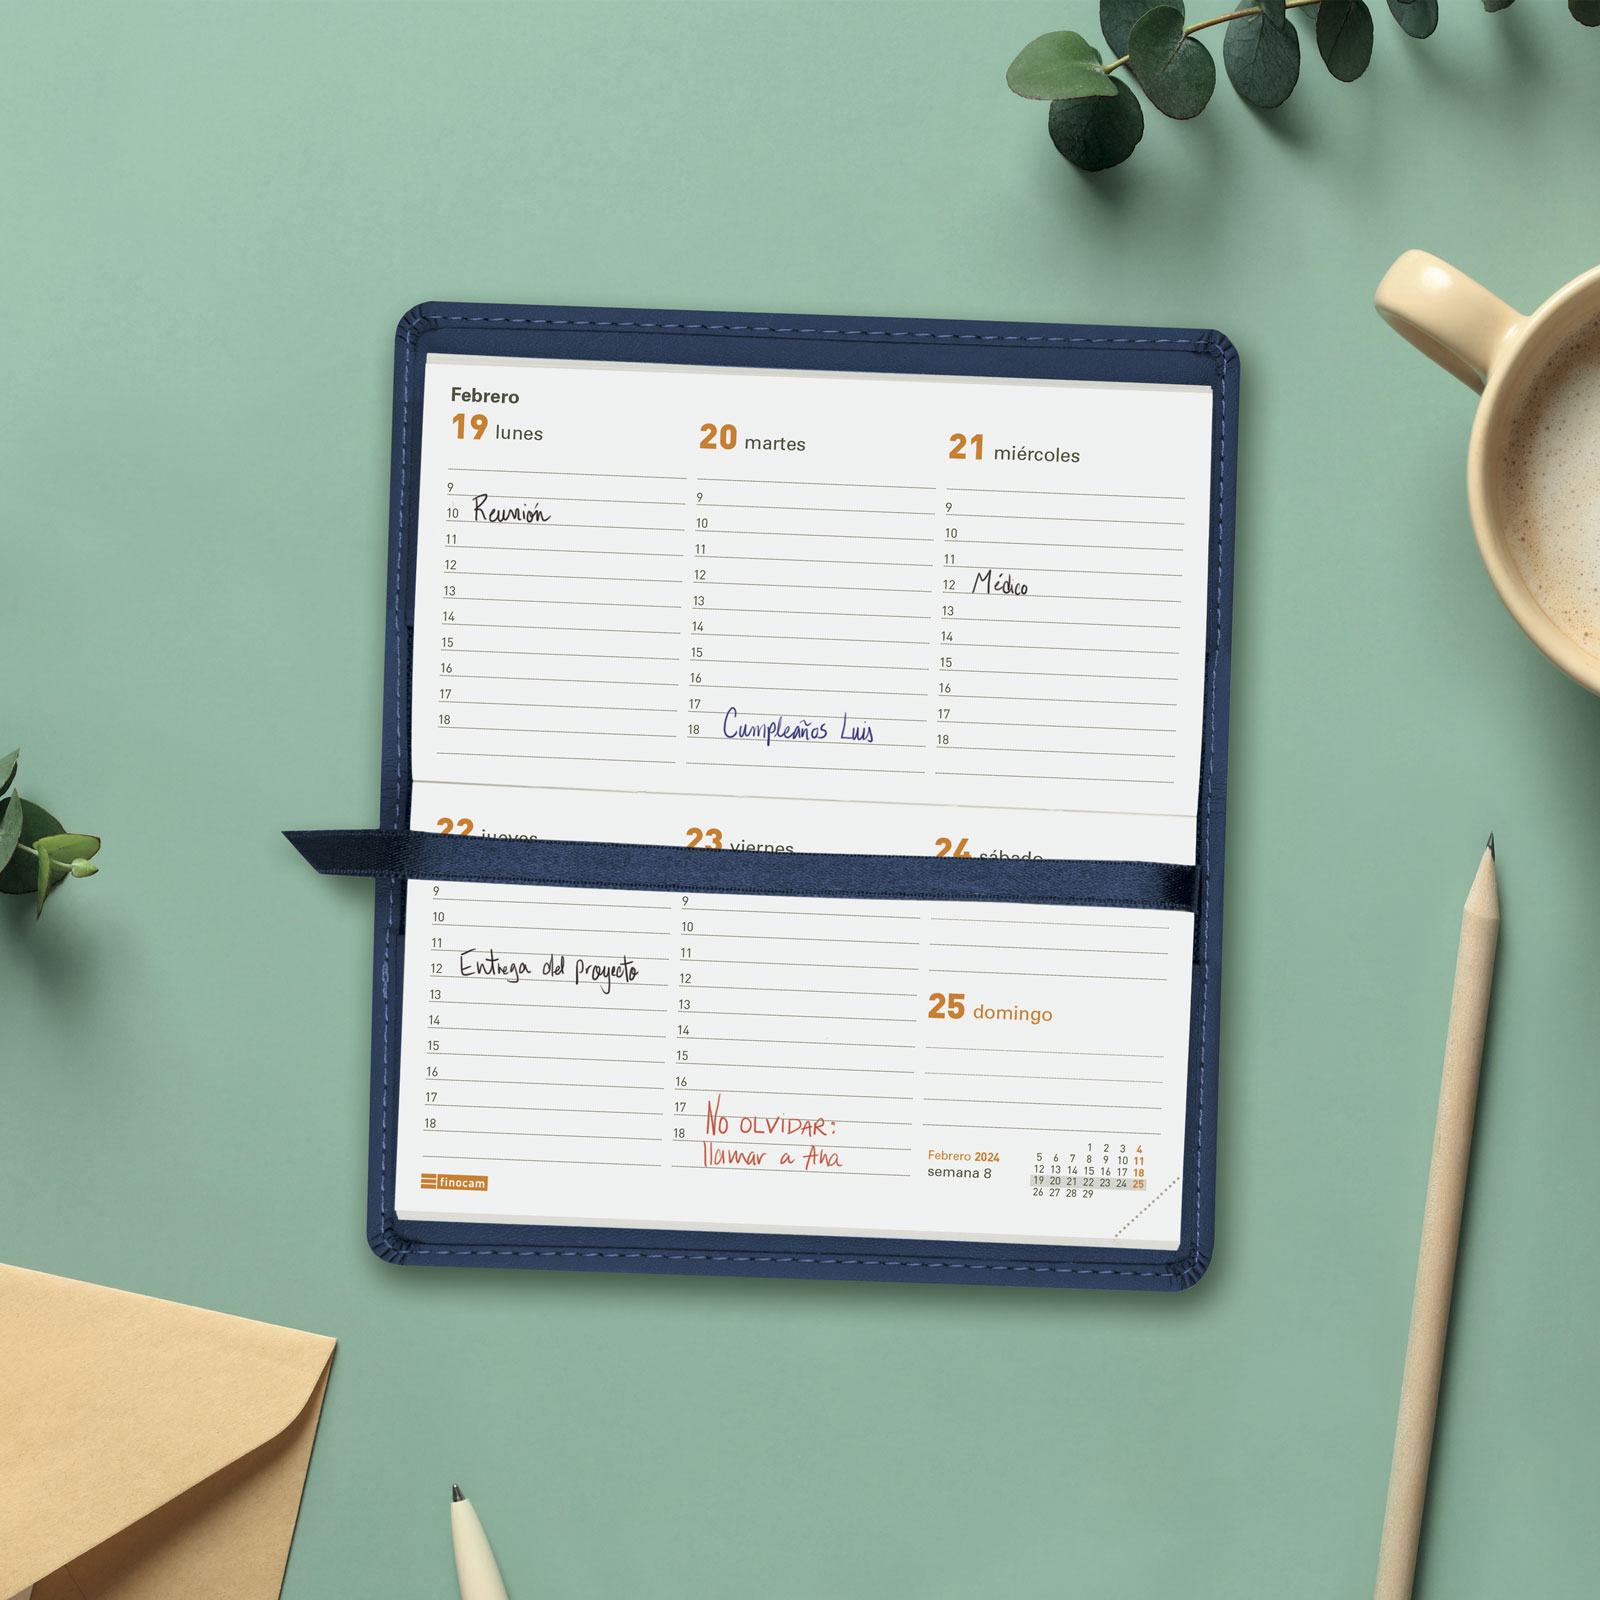 Febrero
19 lunes
9
10 Reunión
11
12
13
14
15
16
17
18
20 martes
9
10
11
12
13
14
15
16
17
18 Cumpleaños Luis
21 miércoles
9
10
11
12 Médico
13
14
15
16
17
18
22 jueves
9
10
11
12 Entrega del proyecto
13
14
15
16
17
18
finocam
23 viernes
9
10
11
12
13
14
15
16
17 No OLVIDAR:
18 llamar a Ana
24 sábado
25 domingo
Febrero 2024
semana 8
1 2 3 4
5 6 7 8 9 10 11
12 13 14 15 16 17 18
19 20 21 22 23 24 25
26 27 28 29